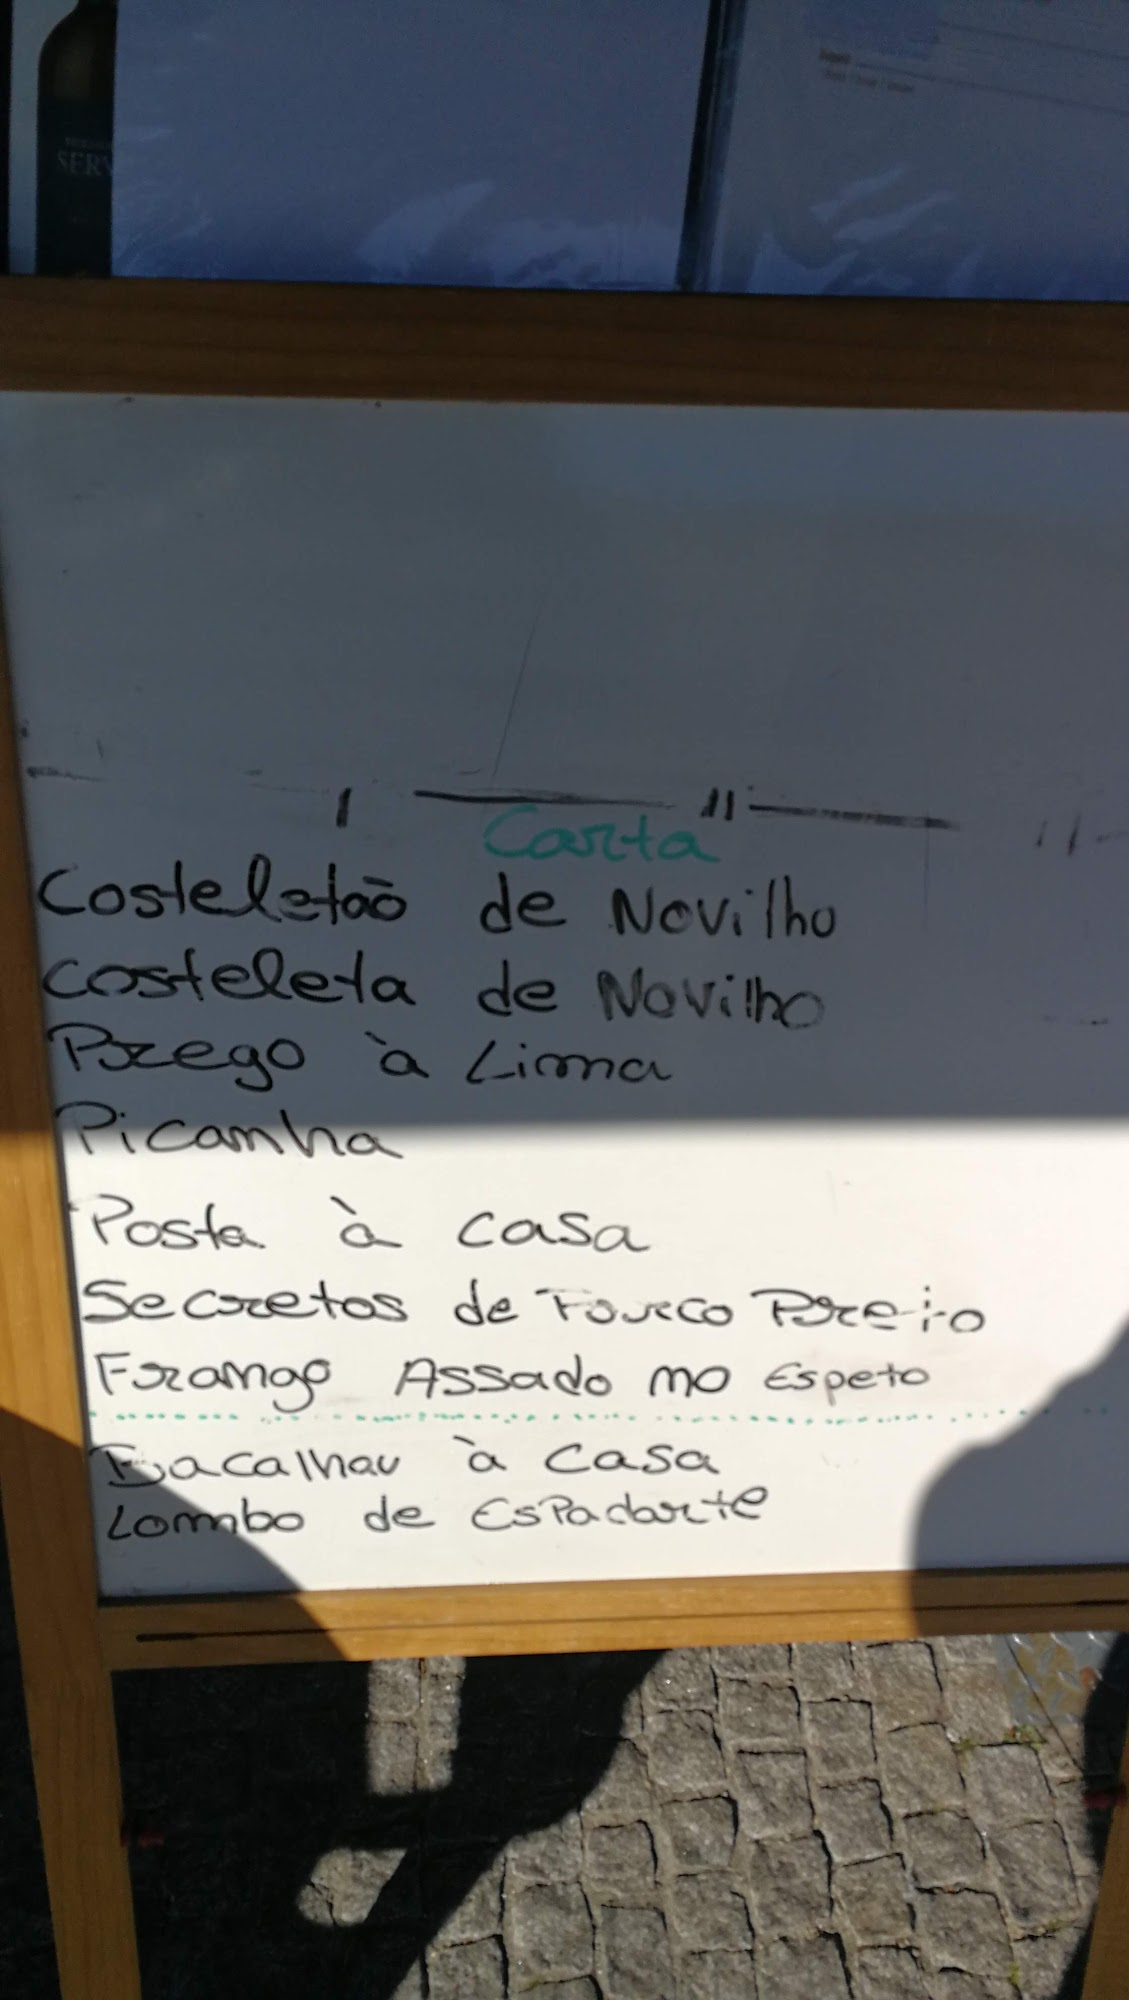 SERV
Carta
Costeletão de Novilho
Costeleta de Novilho
Prego à Lima
Picanha
Posta à casa
Secretos de Porco Preto
Frango Assado no Espeto
Bacalhau à casa
Lombo de Espadarte